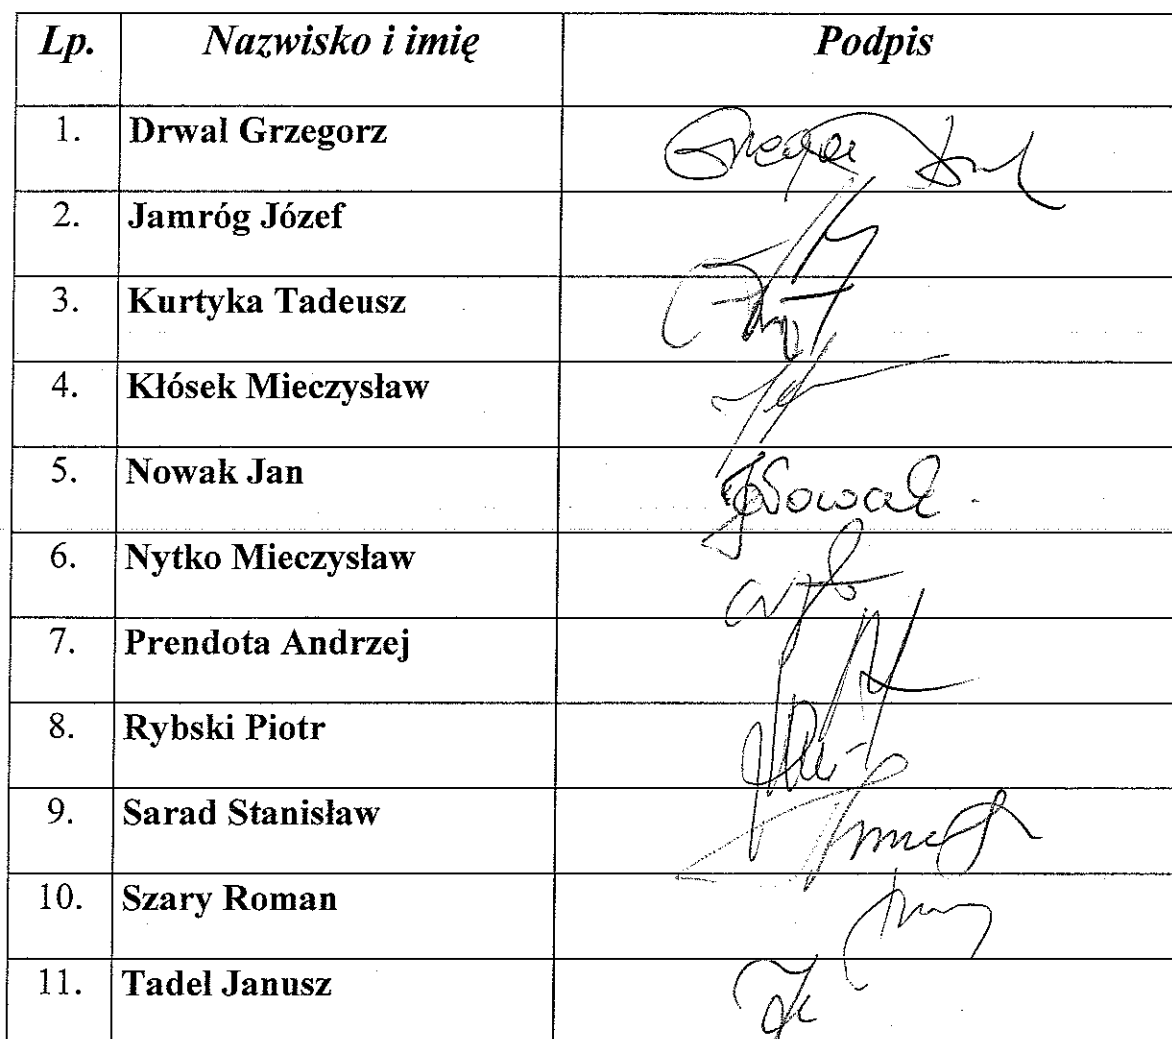 Lp. Nazwisko i imię Podpis
1. Drwal Grzegorz
2. Jamróg Józef
3. Kurtyka Tadeusz
4. Kłósek Mieczysław
5. Nowak Jan JNowak
6. Nytko Mieczysław
7. Prendota Andrzej
8. Rybski Piotr
9. Sarad Stanisław
10. Szary Roman
11. Tadel Janusz